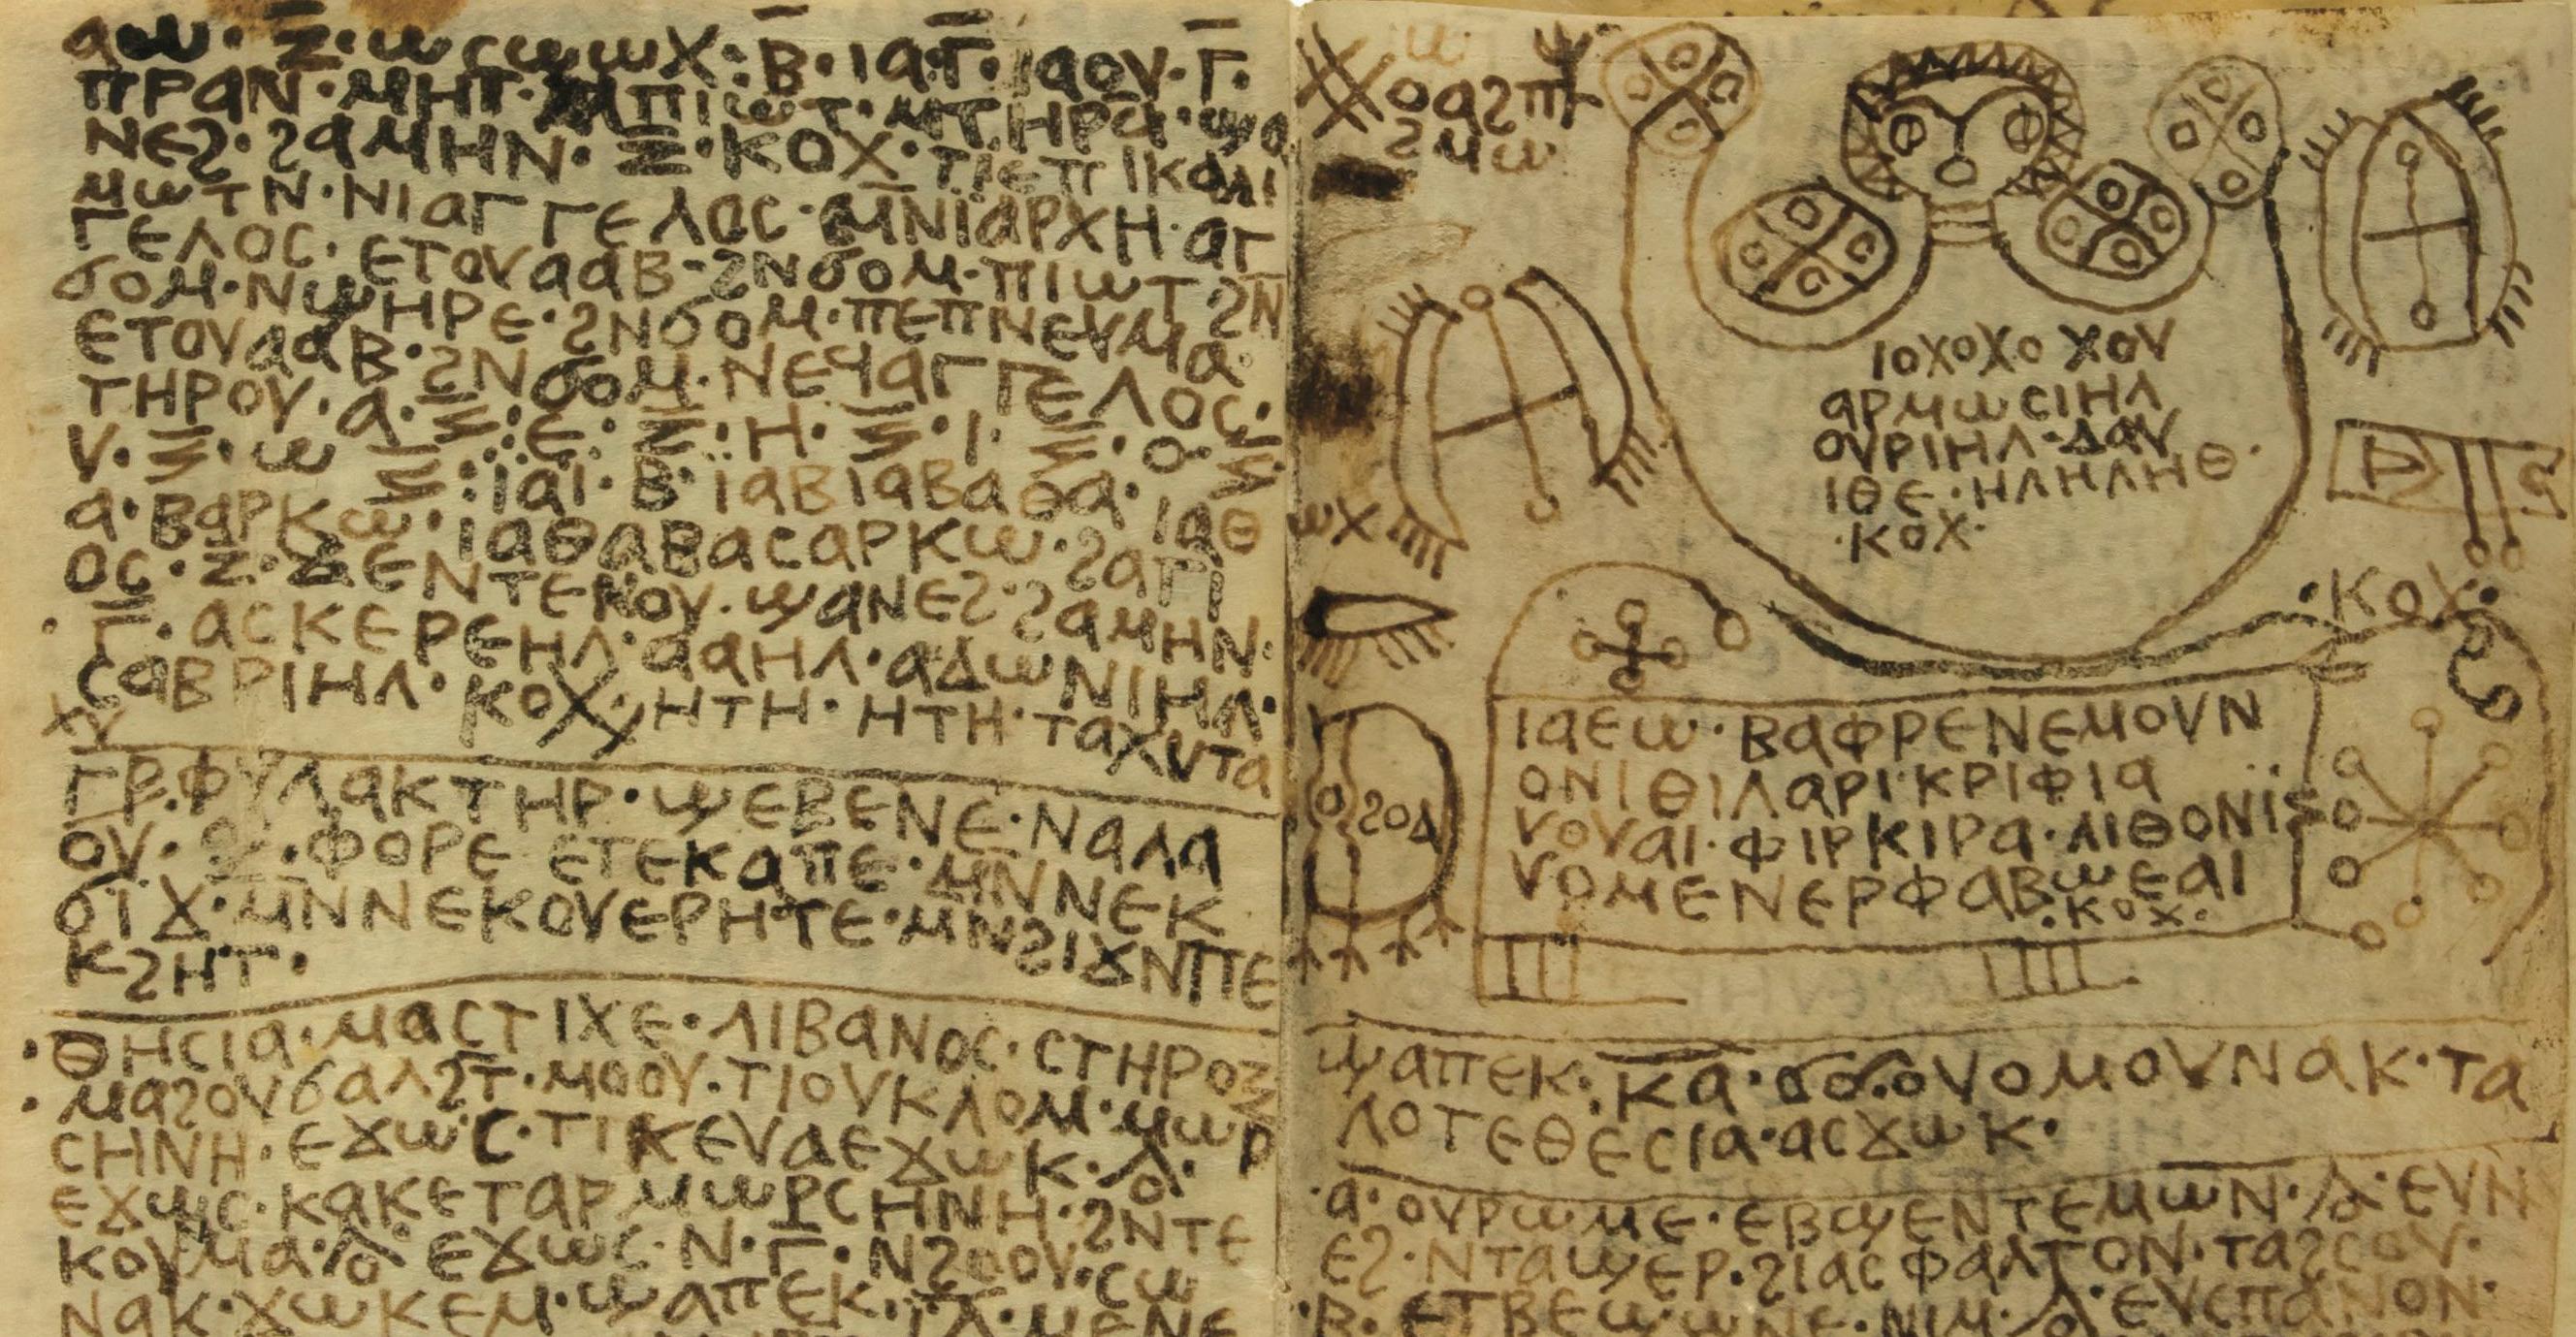 ⲁⲱ· ⲍ̅·ⲱⲥⲱⲱⲭ·ⲃ̅·ⲓⲁ·ⲅ̅·ⲓⲁⲟⲩ·ⲅ̅·
ⲡⲣⲁⲛ·ⲙⲏⲧ· ⲙⲡⲓⲱⲧ·ⲙⲧⲏⲣϥ·ϣⲁ
ⲛⲉϩ·ϩⲁⲙⲏⲛ·ⲍ̅·ⲕⲟⲭ·ϯⲉⲡⲓⲕⲁⲗⲓ
ⲙⲱⲧⲛ·ⲛⲓⲁⲅⲅⲉⲗⲟⲥ·ⲙⲛ̅ⲛⲓⲁⲣⲭⲏ·ⲁⲅ
ⲅⲉⲗⲟⲥ·ⲉⲧⲟⲩⲁⲁⲃ·ϩⲛϭⲟⲙ·ⲡⲓⲱⲧ ϩⲛ̅
ϭⲟⲙ·ⲛϣⲏⲣⲉ·ϩⲛϭⲟⲙ·ⲡⲉⲡⲛⲉⲩⲙⲁ·
ⲉⲧⲟⲩⲁⲁⲃ·ϩⲛϭⲟⲙ·ⲛⲉϥⲁⲅⲅⲉⲗⲟⲥ·
ⲧⲏⲣⲟⲩ·ⲁ·ⲍ̅·ⲉ·ⲍ̅·ⲏ·ⲍ̅·ⲓ·ⲍ̅·ⲟ·ⲍ̅·
ⲩ·ⲍ̅·ⲱ ⲍ̅·ⲓⲁⲓ·ⲃ̅·ⲓⲁⲃⲓⲁⲃⲁⲑⲁ·ⲓⲁⲑ
ⲁ·ⲃⲁⲣⲕⲱ·ⲓⲁⲑⲁⲃⲁⲥⲁⲣⲕⲱ·ϩⲁⲅⲓ
ⲟⲥ·ⲍ̅·ϫⲉⲛⲧⲉⲛⲟⲩ·ϣⲁⲛⲉϩ·ϩⲁⲙⲏⲛ·
ⲅ̅·ⲁⲥⲕⲉⲣⲉⲏⲗ·ⲁⲁⲏⲗ·ⲁⲇⲱⲛⲓⲏⲗ·
ⲥⲁⲃⲣⲓⲏⲗ·ⲕⲟⲭ·ⲏⲧⲏ·ⲏⲧⲏ·ⲧⲁⲭⲩⲧⲁ
ⲭⲩ
ⲅⲣ·ⲫⲩⲗⲁⲕⲧⲏⲣ·ϣⲉⲃⲉⲛⲉ·ⲛⲁⲗⲁ
ⲟⲩ· ·ⲫⲟⲣⲉ ⲉⲧⲉⲕⲁⲡⲉ·ⲙⲛ̅ⲛⲉⲕ
ϭⲓϫ·ⲙⲛⲛⲉⲕⲟⲩⲉⲣⲏⲧⲉ·ⲙⲛϩⲓϫⲛⲡⲉ
ⲕϩⲏⲧ·
·ⲑⲏⲥⲓⲁ·ⲙⲁⲥⲧⲓⲭⲉ·ⲗⲓⲃⲁⲛⲟⲥ·ⲥⲧⲏⲣⲟⲝ
·ⲙⲁϩⲟⲩϭⲁⲗϩⲧ·ⲙⲟⲟⲩ·ϯⲟⲩⲕⲗⲟⲙ·ⲙⲱⲣ
ⲥⲏⲛⲏ·ⲉϫⲱⲥ·ϯⲕⲉⲩⲁⲉϫⲱⲕ·
ⲉϫⲱⲥ·ⲕⲁⲕⲉⲧⲁⲣ ⲙⲱⲣⲥⲏⲛⲏ·ϩⲛⲧⲉ
ⲕⲟⲩⲙⲁ· ⲉϫⲱⲥ·ⲛ·ⲅ̅·ⲛϩⲟⲟⲩ·ⲥⲱ
ⲛⲁⲕ·ϫⲱⲕⲉⲙ·ϣⲁⲡⲉⲕ·
ϩⲙⲱ
ⲓⲟⲭⲟⲭⲟ ⲭⲟⲩ
ⲁⲣⲙⲱⲥⲓⲏⲗ
ⲟⲩⲣⲓⲏⲗ·ⲇⲁⲩ
ⲓⲑⲉ·ⲏⲗⲏⲗⲏⲑ·
·ⲕⲟⲭ·
ⲱⲭ
·ⲕⲟⲭ·
ϩⲟⲇ
ⲓⲁⲉⲱ·ⲃⲁⲫⲣⲉⲛⲉⲙⲟⲩⲛ
ⲟⲛⲓⲑⲓⲗⲁⲣⲓ·ⲕⲣⲓⲫⲓⲁ
ⲩⲟⲩⲁⲓ·ⲫⲓⲣⲕⲓⲣⲁ·ⲗⲓⲑⲟⲛⲓ
ⲩⲟⲙⲉⲛⲉⲣⲫⲁⲃⲱⲉⲁⲓ
·ⲕⲟⲭ·
ϣⲁⲡⲉⲕ·ⲕ̅ⲁ̅·ϭϭ·ⲟⲩⲟⲙⲟⲩⲛⲁⲕ·ⲧⲁ
ⲗⲟⲧⲉⲑⲉⲥⲓⲁ·ⲁⲥϫⲱⲕ·
·ⲁ·ⲟⲩⲣⲱⲙⲉ·ⲉⲃϣⲉⲛⲧⲉⲙⲱⲛ· ·ⲉⲩⲛ
ⲉϩ·ⲛⲧⲁϣⲉⲣ·ϩⲓⲁⲥⲫⲁⲗⲧⲟⲛ·ⲧⲁϩⲥⲟⲩ·
·ⲃ·ⲉⲧⲃⲉϣⲱⲛⲉ·ⲛⲓⲙ· ·ⲉⲩⲥⲡⲁⲛⲟⲛ·